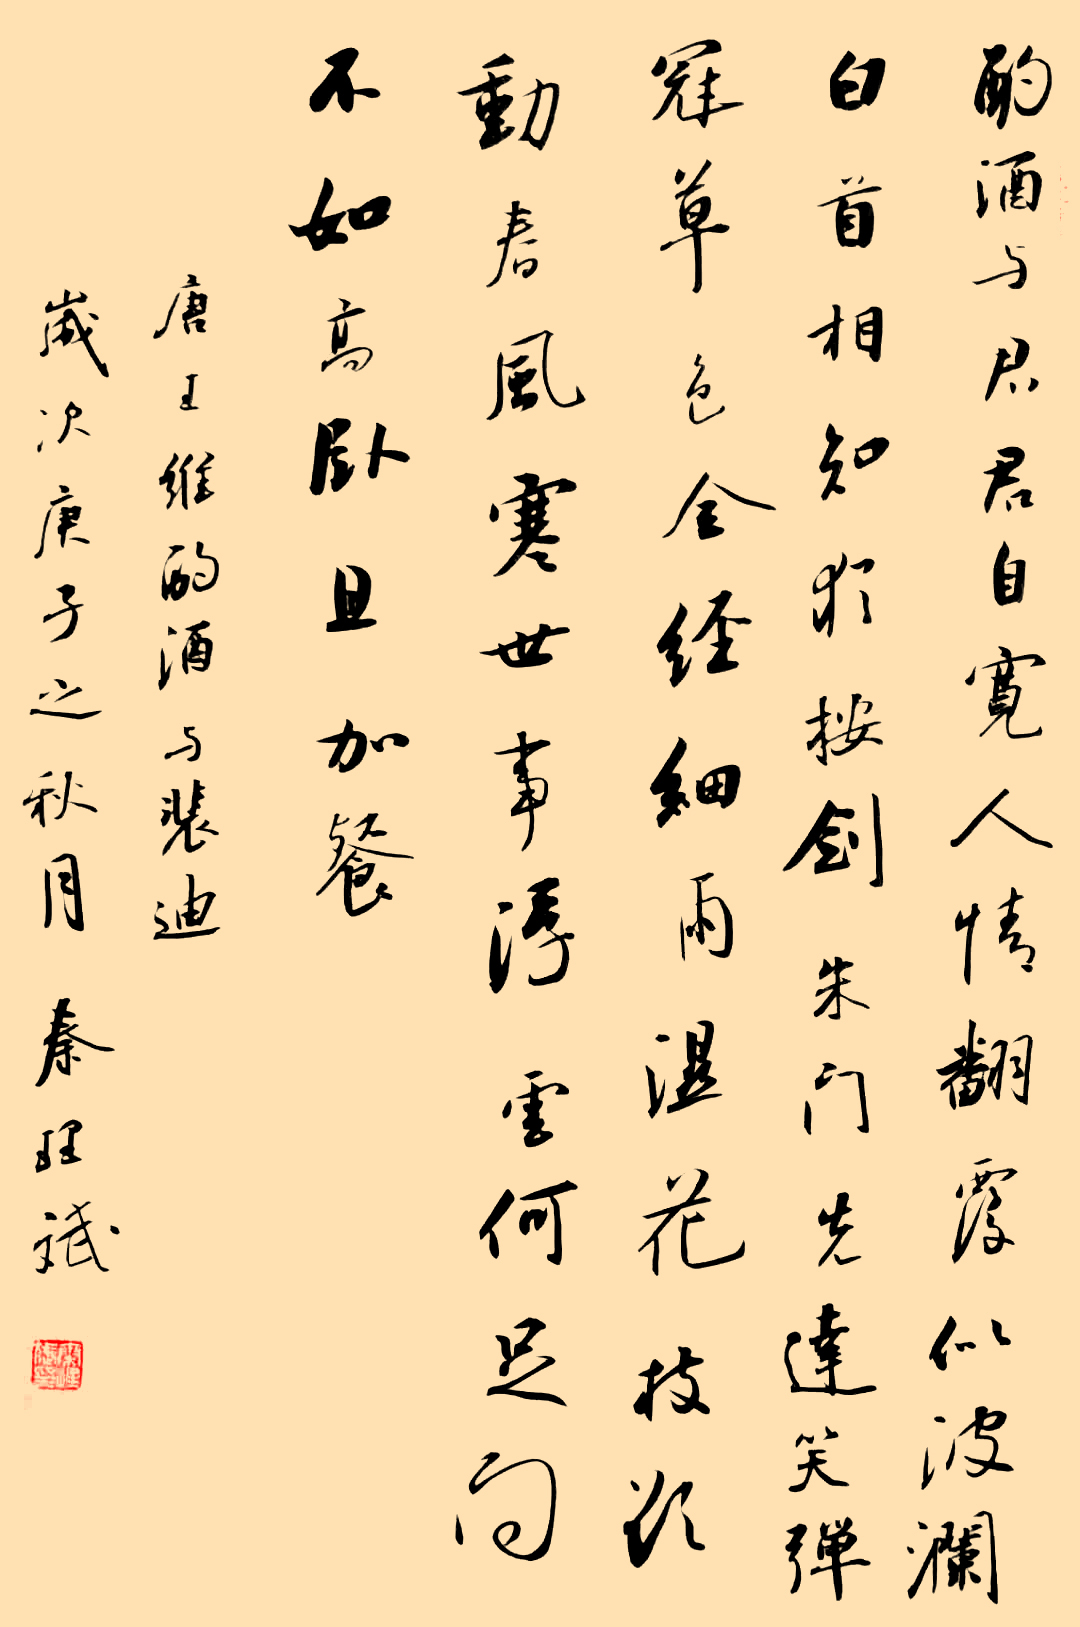 酌酒与君君自寬人情翻覆似波瀾
白首相知猶按劍朱门先達笑弹
冠草色全經細雨湿花枝欲
動春風寒世事浮雲何足问
不如高卧且加餐
唐王維酌酒与裴迪
嵗次庚子之秋月 秦理斌